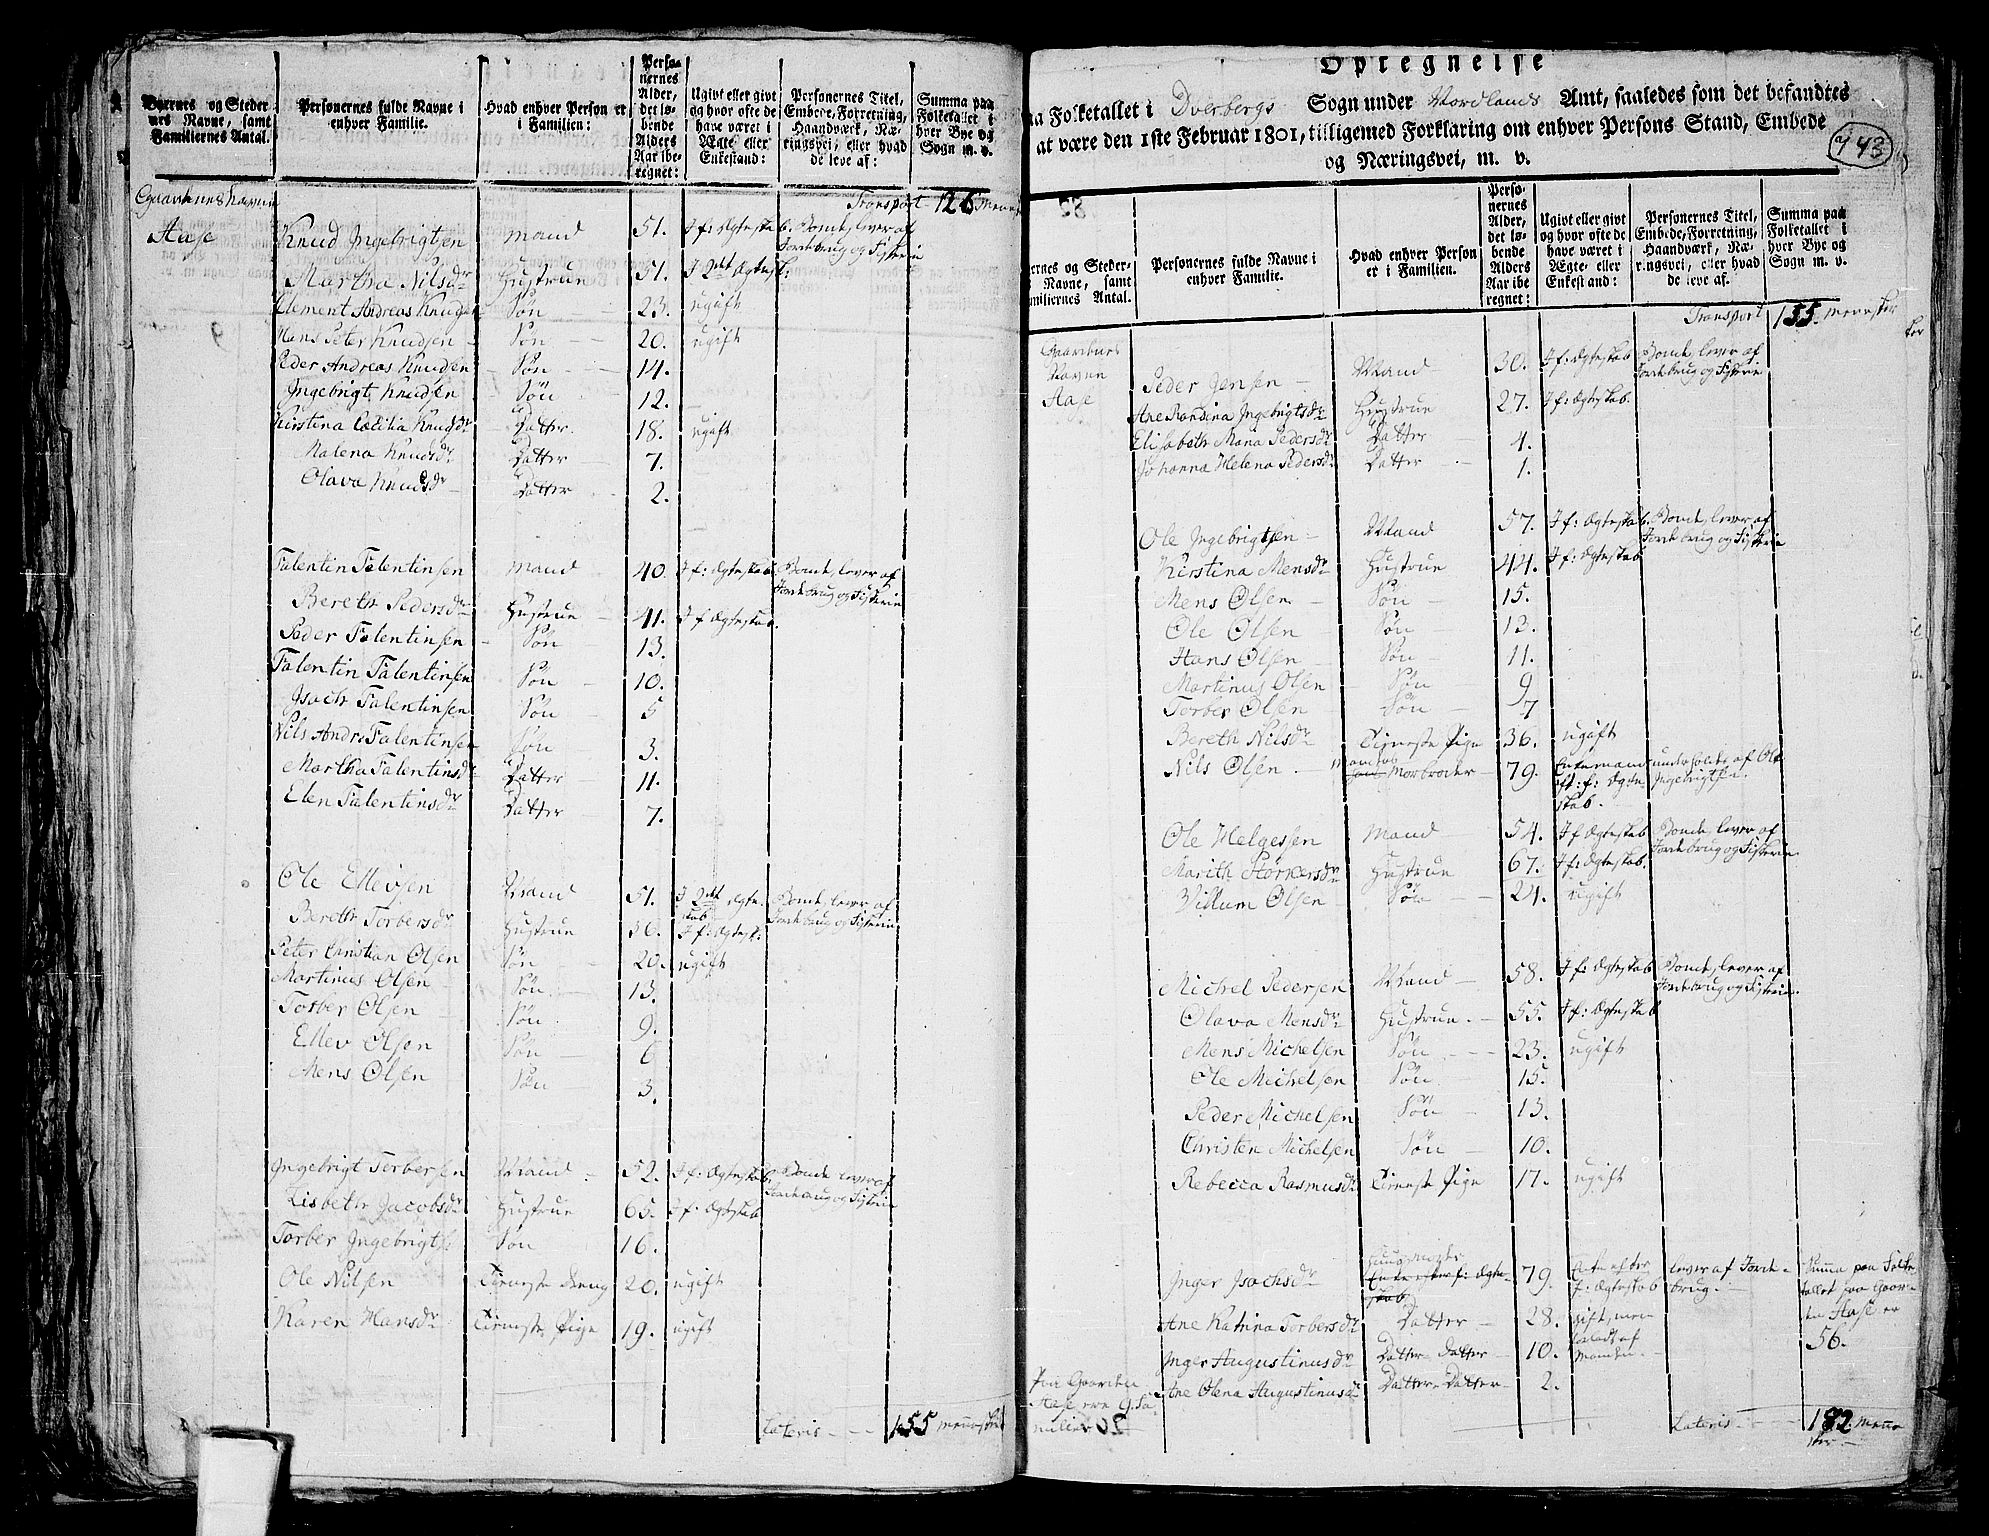 Byernes og Steder-
nes Navne, samt
Familiernes Antal.
Personernes fulde Navne i
enhver Familie.
Hvad enhver Person er
i Familien:
Perso-
nernes
Alder,
det lø-
bende
Alders
Aar ibe-
regnet:
Ugivt eller givt
og hvor ofte de
have været i
Ægte- eller
Enkestand:
Personernes Titel,
Embede, Forretning,
Haandværk, Næ-
ringsvei, eller hvad
de leve af:
Summa paa
Folketallet i
hver Bye og
Sogn m. v.
Gaardenes Navne
Transport 126 menn
Aase Knud Ingebrigtsen Mand 51. I f: Ægteskab. Bonde, lever af
Jordebrug og Fiskerie
Martha Nilsdr Hustrue 51. I 2det Ægtesk:
Clement Andreas Knudsen Søn 23. ugift
Hans Peter Knudsen Søn 20. ugift
Peder Andreas Knudsen Søn 14.
Ingebrigt Knudsen Søn 12.
Kirstina Cæcilia Knudsdr Datter 18. ugift
Malena Knudsdr Datter 7.
Olava Knudsdr Datter 2.
Falentin Falentinsen Mand 40. I f: Ægteskab. Bonde, lever af
Jordebrug og Fiskerie
Bereth Pedersdr Hustrue 41. I f: Ægteskab.
Peder Falentinsen Søn 13.
Falentin Falentinsen Søn 10.
Isach Falentinsen Søn 5
Nils Andr: Falentinsen Søn 3.
Martha Falentinsdr Datter 11.
Elen Falentinsdr Datter 7.
Ole Ellevsen Mand 51. I 2det Ægte-
skab Bonde, lever af
Jordebrug og Fiskerie
Bereth Torbersdr Hustrue 36. I f: Ægtesk:
Peter Christian Olsen Søn 20. ugift
Martinus Olsen Søn 13.
Torber Olsen Søn 9.
Ellev Olsen Søn 6
Mens Olsen Søn 3.
Ingebrigt Torbersen Mand 52. I f: Ægteskab. Bonde lever af
Jordebrug og Fiskerie
Lisbeth Jacobsdr Hustrue 65. I f: Ægteskab.
Torber Ingebrigts: Søn 16.
Ole Nilsen Tieneste Dreng 20. ugift
Karen Hansdr Tieneste Pige 19. ugift
Lateris - - - 155 mennesker
Opregnelse
paa Folketallet i Dverbergs Sogn under Nordlands Amt, saaledes som det befandtes
at være den 1ste Februar 1801, tilligemed Forklaring om enhver Persons Stand, Embede
og Næringsvei, m. v.
443
ernes og Steder-
Navne, samt
miliernes Antal.
Personernes fulde Navne i
enhver Familie.
Hvad enhver Person
er i Familien.
Perso-
nernes
Alder,
det lø-
bende
Alders
Aar ibe-
regnet:
Ugivt eller givt
og hvor ofte de
have været i
Ægte- eller
Enkestand:
Personernes Titel,
Embede, Forretning,
Haandværk, Næ-
ringsvei, eller hvad
de leve af.
Summa paa
Folketallet i
hver Bye og
Sogn m. v.
Transport 155. Mennesker
Gaardenes
Navne
Aase
Peder Jensen Mand 30. I f: Ægteskab Bonde, lever af
Jordebrug og Fiskerie
Ane Randina Ingebrigtsdr Hustrue 27. I f: Ægteskab.
Elisabeth Maria Pedersdr Datter 4.
Johanna Helena Pedersdr Datter 1.
Ole Ingebrigtsen Mand 57. I f: Ægteskab. Bonde, lever af
Jordebrug og Fiskerie
Kirstina Mensdr Hustrue 44. I f: Ægteskab
Mens Olsen Søn 15.
Ole Olsen Søn 12.
Hans Olsen Søn 11.
Martinus Olsen Søn 9
Torber Olsen Søn 7
Bereth Nilsdr Tieneste Pige 36. ugift
Nils Olsen Morbroder 79. Enkemand
eft: f: Ægte-
skab. underholdes af Ole
Ingebrigtsen.
Ole Helgessen Mand 54. I f Ægteskab Bonde, lever af
Jordebrug og Fiskerie.
Marith Størkersdr Hustrue 67. I f: Ægteskab.
Villum Olsen Søn 21. ugift
Michel Pedersen Mand 58. I f: Ægteskab Bonde, lever af
Jordebrug og Fiskerie.
Olava Mensdr Hustrue 55. I f: Ægteskab
Mens Michelsen Søn 23. ugift
Ole Michelsen Søn 15.
Peder Michelsen Søn 13.
Christen Michelsen Søn 10.
Rebecca Rasmusdr Tieneste Pige 17. ugift
Inger Isachsdr Huusmoder 79. Enke efter
f: Ægteskab lever af Jorde-
brug.
Ane Katrina Torbersdr Datter 28. gift, men
forladt af
Manden.
Inger Augustinusdr Datter Datter 10.
Ane Olena Augustinusdr Datter-Datter 2.
Summa paa Folke-
tallet paa Gaar-
den Aase er
56.
Paa Gaarden
Aase ere 9. Fa-
milier
Lateris 182 Menne
sker